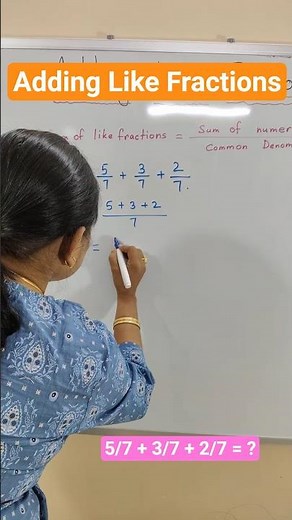 Adding Like Fractions
of like fractions = Sum of
Common
5/7 + 3/7 + 2/7.
5 + 3 + 2
7
=
5/7 + 3/7 + 2/7 = ?